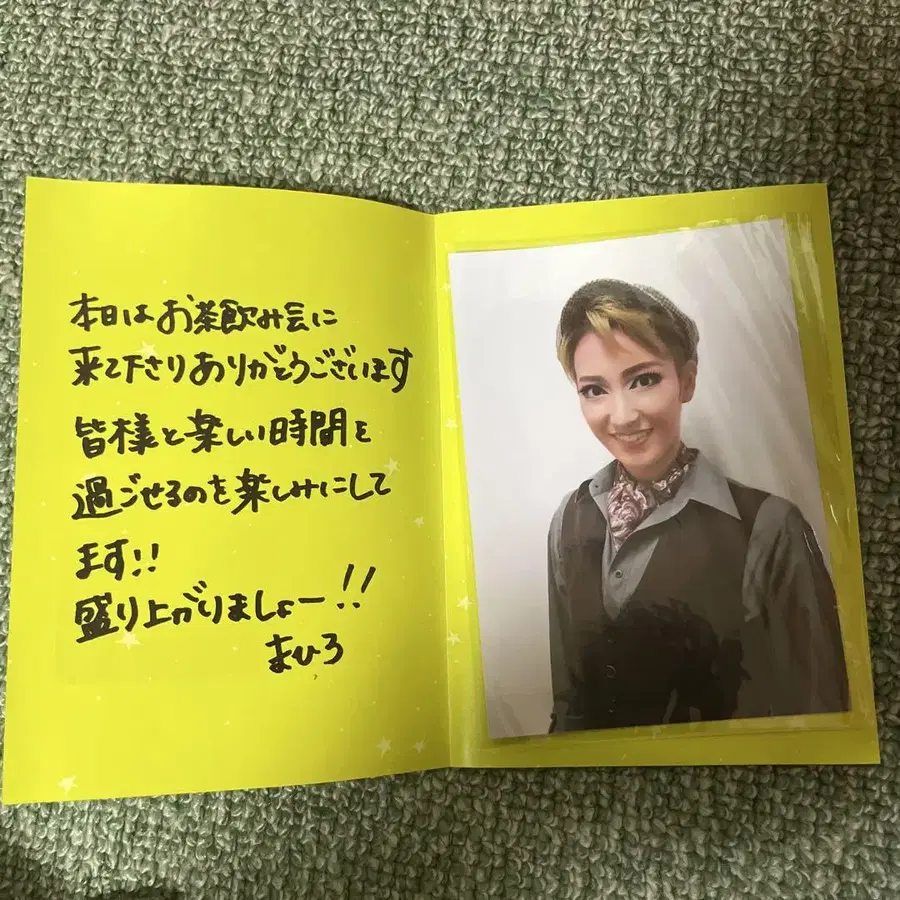 本日はお茶飲み会に
来て下さりありがとうございます
皆様と楽しい時間を
過ごせるのを楽しみにして
ます!!
盛り上がりましょー!!
まひろ